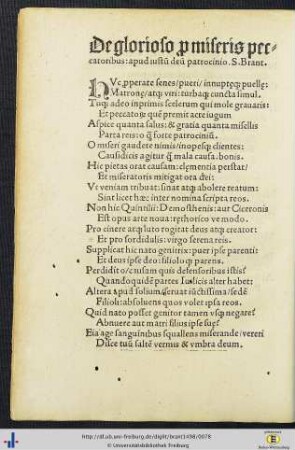 De glorioso p̱ miseris pec-
catoribus: apud iustū deū patrocinio. S. Brant.
HVc ꝓperate senes/pueri/innuptęꝗ puellę:
Matronę/atꝗ viri: turbaꝗ cuncta simul.
Tuꝗ adeo inprimis scelerum qui mole grauaris:
Et peccatoꝝ quē premit acre iugum
Aspice quanta salus: & gratia quanta misellis
Parta reis: o forte patrociniū.
O miseri gaudete nimis/inopesꝗ clientes:
Causidicis agitur mala causa. bonis.
Hic pietas orat causam: clementia perstat/
Et miseratoris mitigat ora dei.
Ut veniam tribuat: sinat atꝗ abolere reatum:
Sint licet hæc inter nomina scripta reos.
Non hic Quintilii: Demosthenis: aut Ciceronis
Est opus arte noua: rethorico ve modo.
Pro cinere atꝗ luto rogitat deus atꝗ creator:
Et pro sordidulis: virgo serena reis.
Supplicat hic nato genitrix: puer ipse parenti:
Et deus ipse deo: filioloꝗ parens.
Perdidit o/causam quis defensoribus istis?
Quandoquidē partes Iudicis alter habet:
Altera apud solium seruat iustissima/sedē
Filioli: absoluens quos volet ipsa reos.
Quid nato posset genitor tamen vsꝗ negare?
Abnuere aut matri filius ipse suę?
Eia age sanguinibus squallens miserande/vereri
Disce tuū saltē vermis & vmbra deum.
http://dl.ub.uni-freiburg.de/diglit/brant1498/0078
© Universitätsbibliothek Freiburg